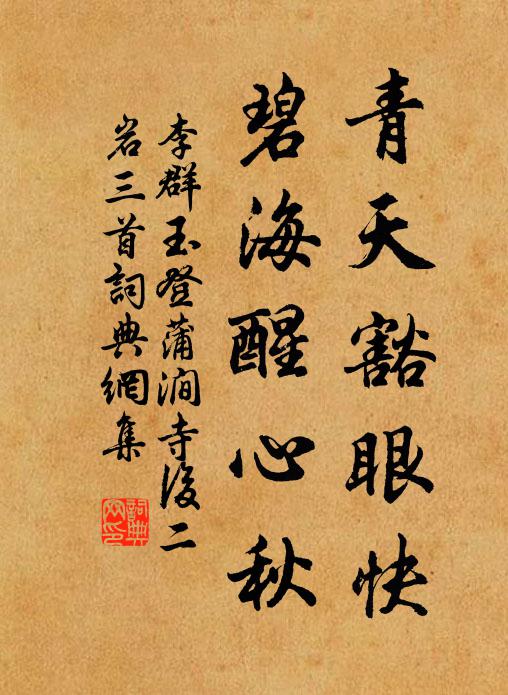 青天豁眼快
碧海醒心秋
李群玉登蒲澗寺後二
岩三首詞典網集
詞典網印